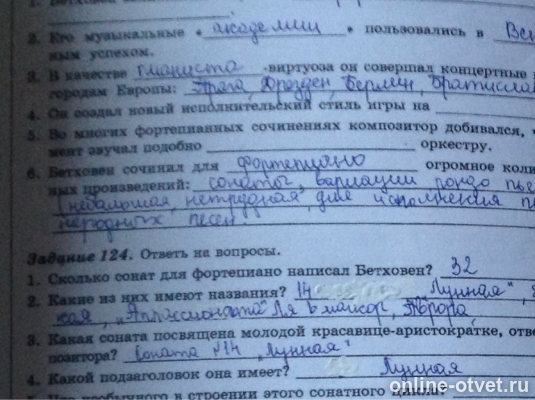 2. Его музыкальные « академии » пользовались в Вен
ным успехом.
3. В качестве пианиста -виртуоза он совершал концертные
городам Европы: Прага, Дрезден, Берлин, Братислав
4. Он создал новый исполнительский стиль игры на
5. Во многих фортепианных сочинениях композитор добивался,
мент звучал подобно оркестру.
6. Бетховен сочинил для фортепиано огромное коли
ных произведений: сонаты, вариации рондо пье
(небольшая, нетрудная, для исполнения п
народных песен.
Задание 124. Ответь на вопросы.
1. Сколько сонат для фортепиано написал Бетховен? 32
2. Какие из них имеют названия? 14 "Лунная",
кая, „Аппассионата" Ля b мажор, "Аврора
3. Какая соната посвящена молодой красавице-аристократке, отве
позитора? Соната №14 „Лунная"
4. Какой подзаголовок она имеет? Лунная
необычного в строении этого сонатного цикла?
online-otvet.ru